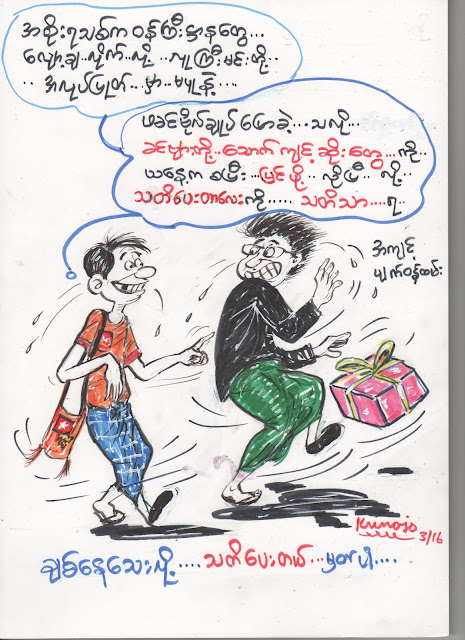 အစိုးရသစ်က ဝန်ကြီးဌာနတွေ...
လျှော့ချ..လိုက်..လို့..လူကြီးမင်းတို့..
..အလုပ်ပြုတ်..မှာ..မပူနဲ့....
ဗိုလ်ချုပ်ပြောခဲ့...သလို...
ခင်ဗျားတို့..သောက်ကျင့်ဆိုးတွေ...ကို..
ယနေ့က စပြီး...ပြင်ဖို့..လိုပြီ..လို့..
သတိပေးတာလေးကို.....သတိသာ....ရ.
အကျင့်
ပျက်ဝန်ထမ်း
Kunojo
3/16
ချစ်နေသေးလို့....သတိပေးတယ်...မှတ်ပါ....